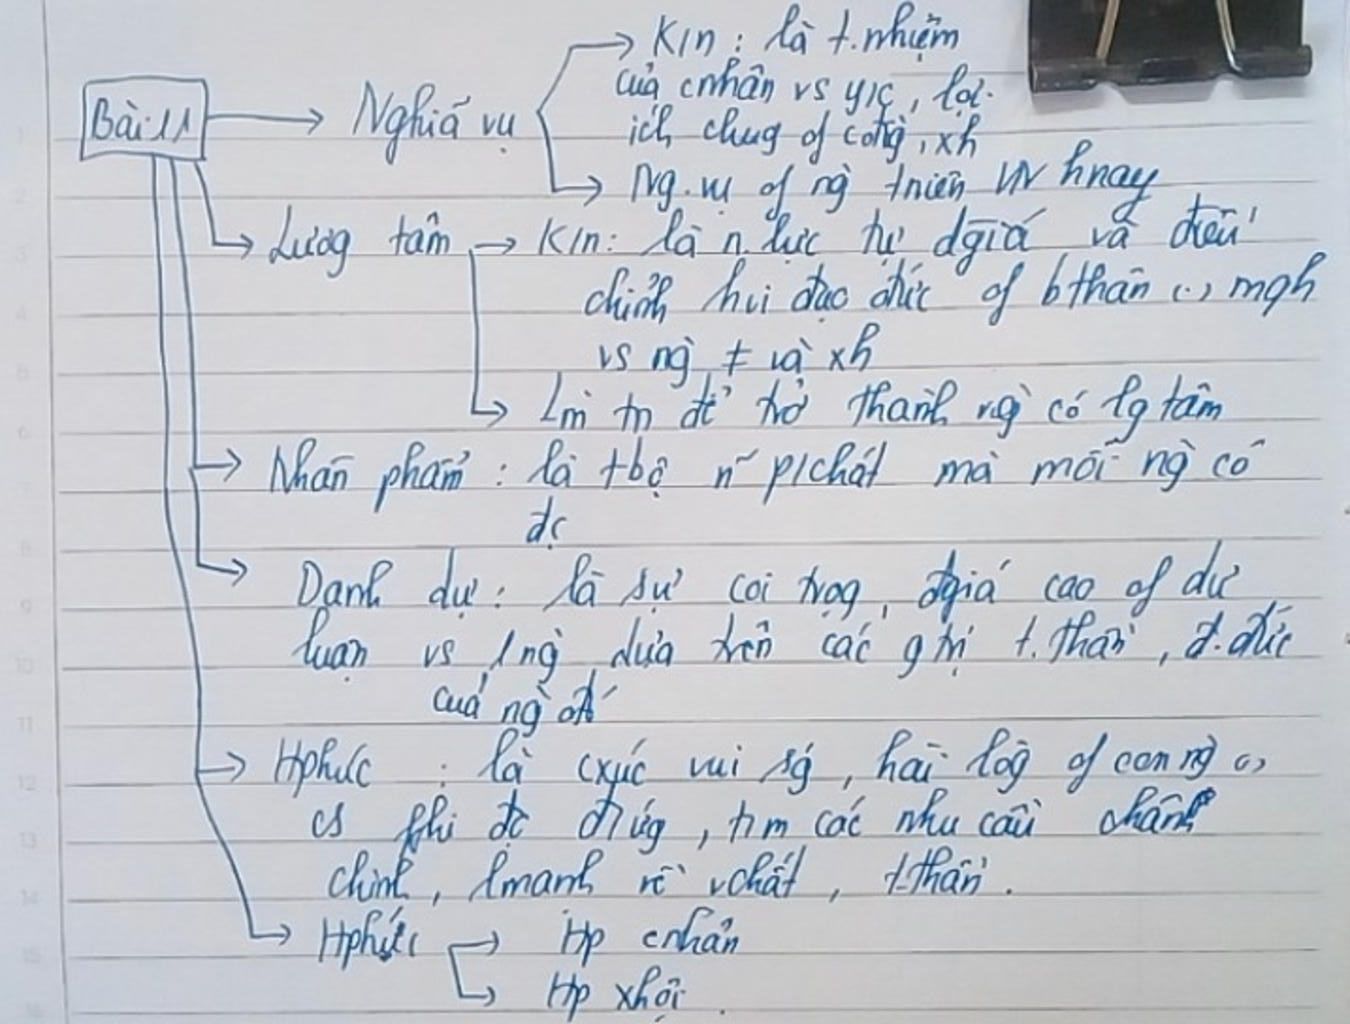 Bài 11
Nghĩa vụ
K/n : là t.nhiệm
của cnhân vs y/c, lợi
ích chug of cộng, xh
Ng.vụ of ng̀ tniên VN hnay
Lương tâm
K/n : là n.lực tự đgiá và điều
chỉnh hvi đạo đức of bthân (.) mqh
vs ng̀ ≠ và xh
Lm̀ tn để trở thành ng̀ có lg tâm
Nhân phẩm : là tbộ n~ p/chất mà mỗi ng̀ có
đc
Danh dự : là sự coi trọg, đgiá cao of dư
luận vs 1 ng̀ dựa trên các g trị t.thần, đ.đức
của ng̀ đó
Hphúc : là cxúc vui sg', hài lòg of con ng̀ (.)
cs khi đc đ/ứg, t/m các nhu cầu chân
chính, lmạnh về vchất, t.thần.
Hphúc
Hp cnhân
Hp xhội.